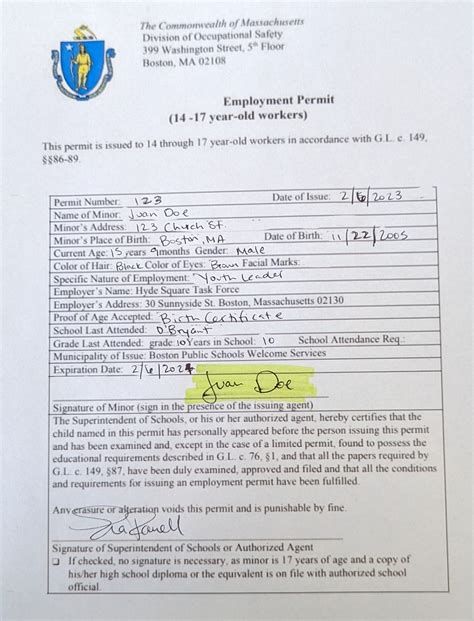 The Commonwealth of Massachusetts
Division of Occupational Safety
399 Washington Street, 5th Floor
Boston, MA 02108
Employment Permit
(14 -17 year-old workers)
This permit is issued to 14 through 17 year-old workers in accordance with G.L. c. 149,
§§86-89.
Permit Number: 123 Date of Issue: 2/6/2023
Name of Minor: Juan Doe
Minor's Address: 123 Church St.
Minor's Place of Birth: Boston, MA Date of Birth: 11/22/2005
Current Age: 15 years 9 months Gender: Male
Color of Hair: Black Color of Eyes: Brown Facial Marks:
Specific Nature of Employment: Youth Leader
Employer's Name: Hyde Square Task Force
Employer's Address: 30 Sunnyside St. Boston, Massachusetts 02130
Proof of Age Accepted: Birth Certificate
School Last Attended: O'Bryant
Grade Last Attended: grade 10 Years in School: 10 School Attendance Req.:
Municipality of Issue: Boston Public Schools Welcome Services
Expiration Date: 2/6/2024
Juan Doe
Signature of Minor (sign in the presence of the issuing agent)
The Superintendent of Schools, or his or her authorized agent, hereby certifies that the
child named in this permit has personally appeared before the person issuing this permit
and has been examined and, except in the case of a limited permit, found to possess the
educational requirements described in G.L. c. 76, §1, and that all the papers required by
G.L. c. 149, §87, have been duly examined, approved and filed and that all the conditions
and requirements for issuing an employment permit have been fulfilled.
Any erasure or alteration voids this permit and is punishable by fine.
Signature of Superintendent of Schools or Authorized Agent
If checked, no signature is necessary, as minor is 17 years of age and a copy of
his/her high school diploma or the equivalent is on file with authorized school
official.